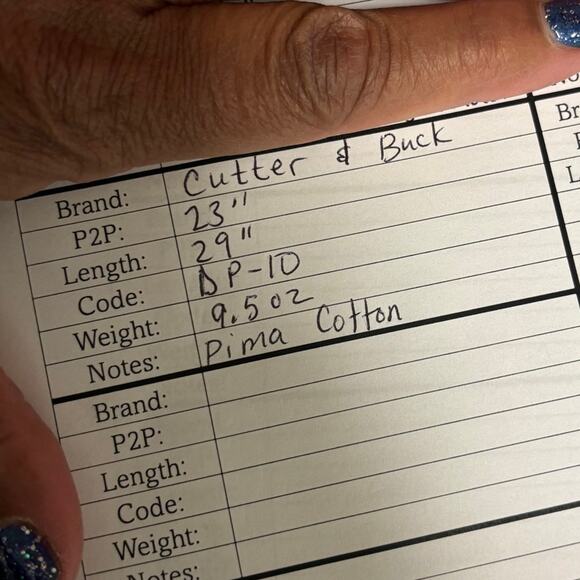 Brand: Cutter & Buck
P2P: 23"
Length: 29"
Code: DP-10
Weight: 9.5 oz
Notes: Pima Cotton
Brand:
P2P:
Length:
Code:
Weight:
Notes: